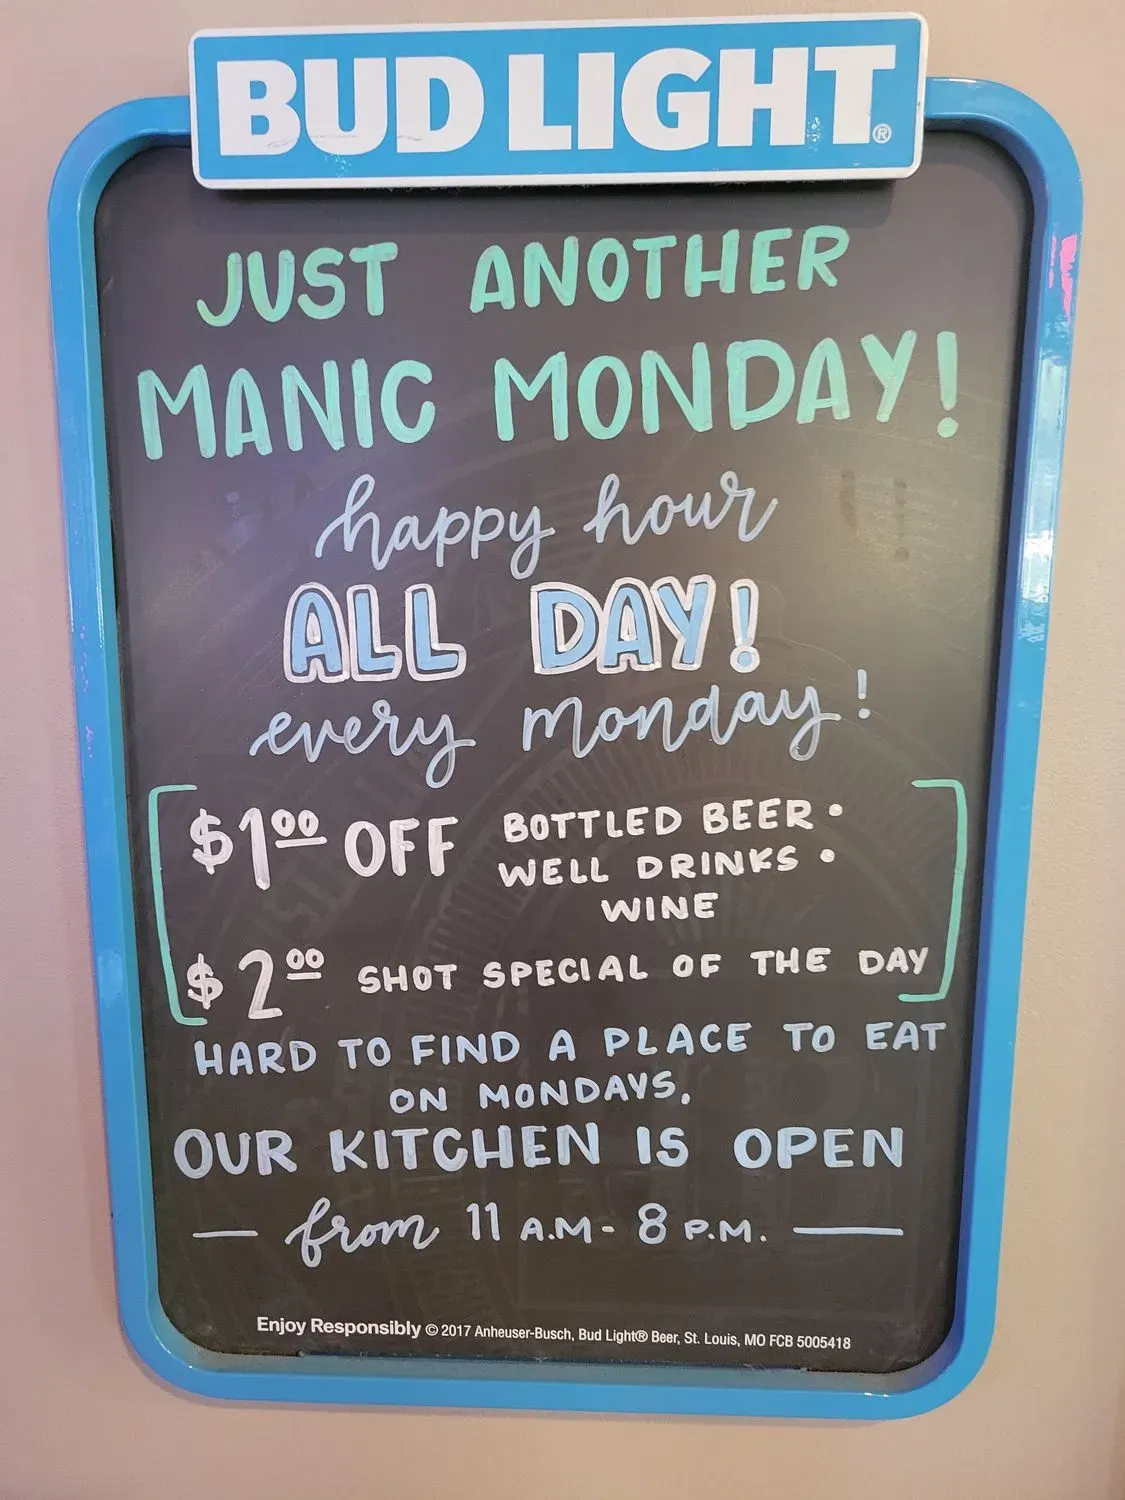 BUD LIGHT®
JUST ANOTHER
MANIC MONDAY!
happy hour
ALL DAY!
every monday!
$1.00 OFF BOTTLED BEER •
WELL DRINKS •
WINE
$2.00 SHOT SPECIAL OF THE DAY
HARD TO FIND A PLACE TO EAT
ON MONDAYS.
OUR KITCHEN IS OPEN
— from 11 A.M- 8 P.M. —
Enjoy Responsibly © 2017 Anheuser-Busch, Bud Light® Beer, St. Louis, MO FCB 5005418